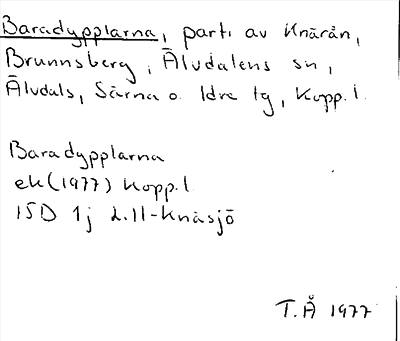 Baradypplarna, parti av Knärån,
Brunnsberg, Älvdalens sn,
Älvdals, Särna o. Idre tg, Kopp. l.
Baradypplarna
ek (1977) Kopp. l.
15D 1j 2.11-Knåsjö
T.Å 1977